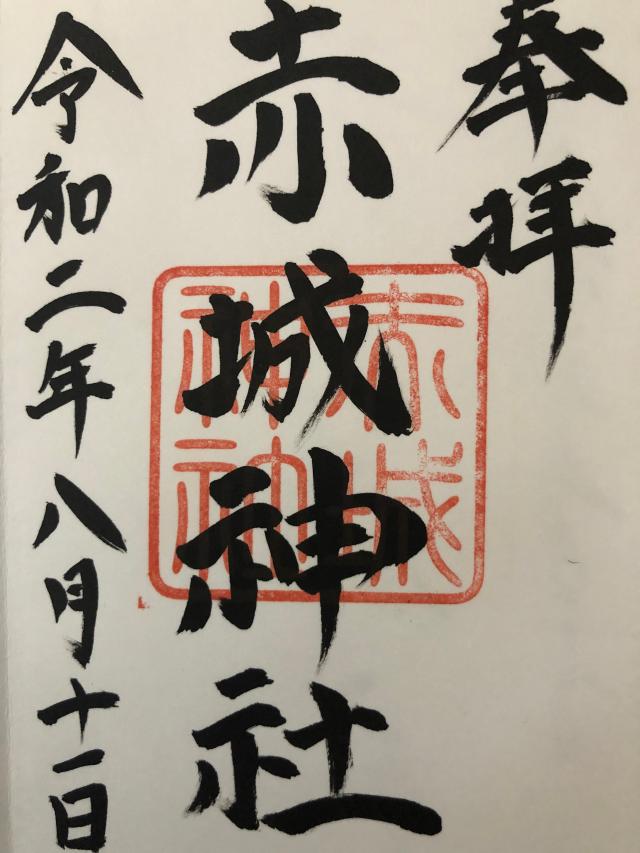 奉拝
赤城神社
赤城神社
令和二年八月十一日